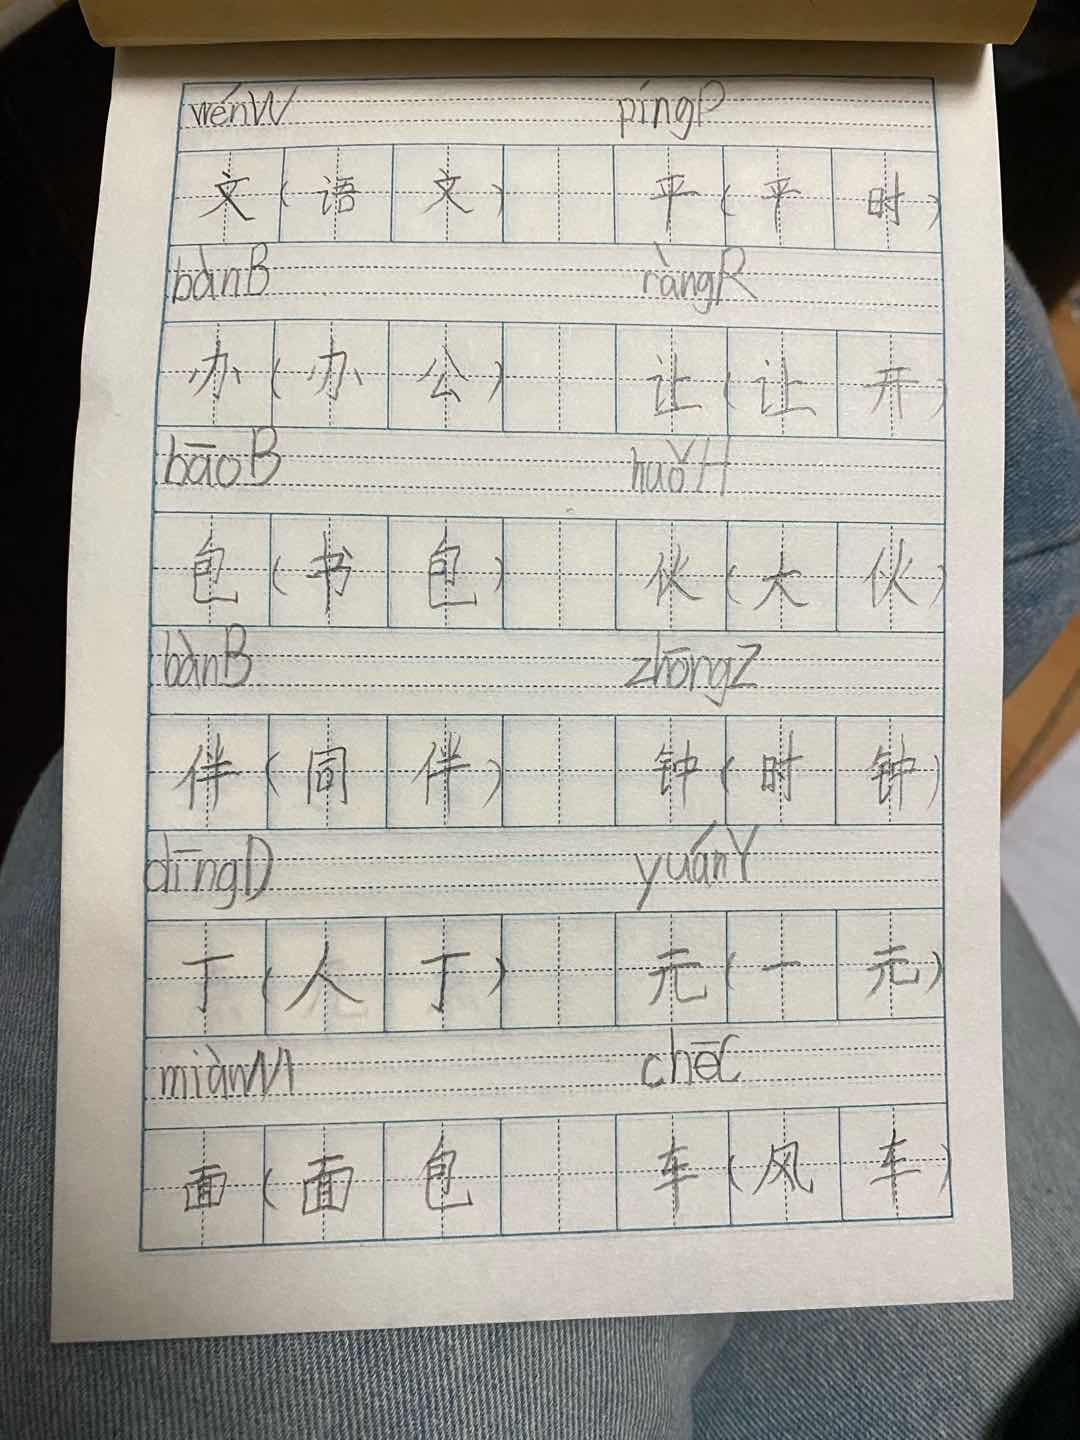 wénW píngP
文(语文) 平(平时)
bànB ràngR
办(办公) 让(让开)
bāoB huǒH
包(书包) 伙(大伙)
bànB zhōngZ
伴(同伴) 钟(时钟)
dīngD yuánY
丁(人丁) 元(一元)
miànM chēC
面(面包 车(风车)